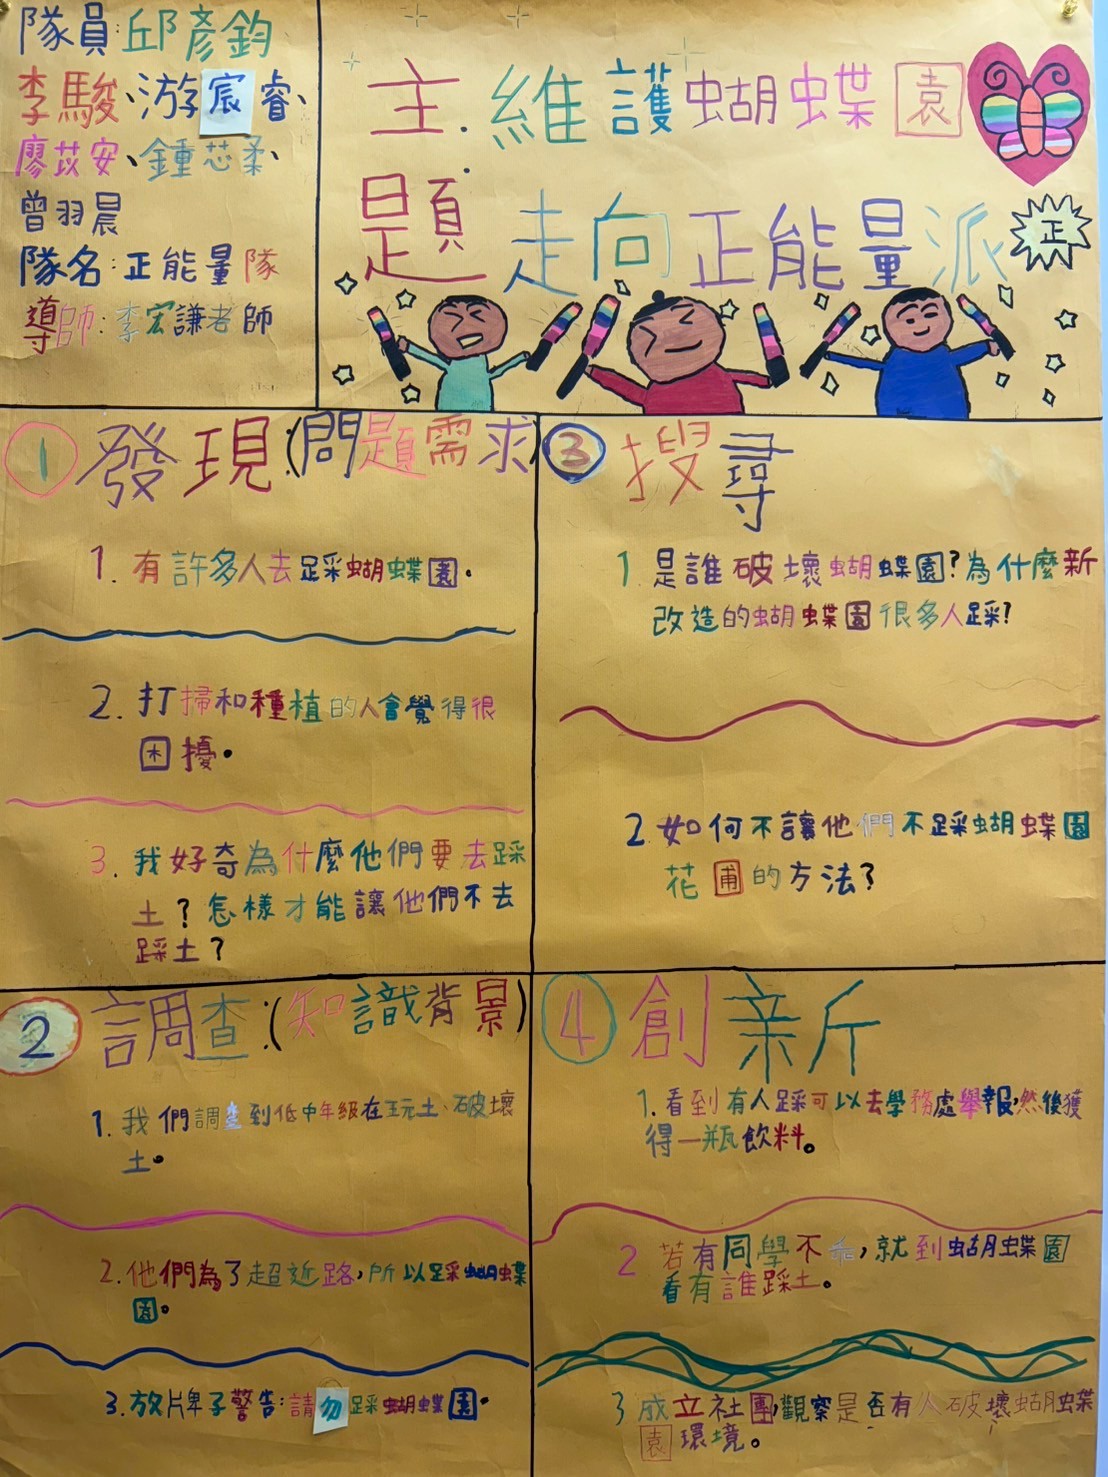 隊員:邱彥鈞
李駿、游宸睿、
廖苡安、鍾芯柔、
曾羽晨
隊名:正能量隊
導師:李宏謙老師
主題:維護蝴蝶園
走向正能量派
正
1 發現:(問題需求)
1.有許多人去踩蝴蝶園。
2.打掃和種植的人會覺得很
困擾。
3.我好奇為什麼他們要去踩
土?怎樣才能讓他們不去
踩土?
2 調查:(知識背景)
1.我們調查到低中年級在玩土、破壞
土。
2.他們為了超近路,所以踩蝴蝶
園。
3.放牌子警告:請勿踩蝴蝶園。
3 搜尋
1.是誰破壞蝴蝶園?為什麼新
改造的蝴蝶園很多人踩?
2.如何不讓他們不踩蝴蝶園
花圃的方法?
4 創新
1.看到有人踩可以去學務處舉報,然後獲
得一瓶飲料。
2 若有同學不,就到蝴蝶園
看有誰踩土。
3 成立社團,觀察是否有人破壞蝴蝶
園環境。